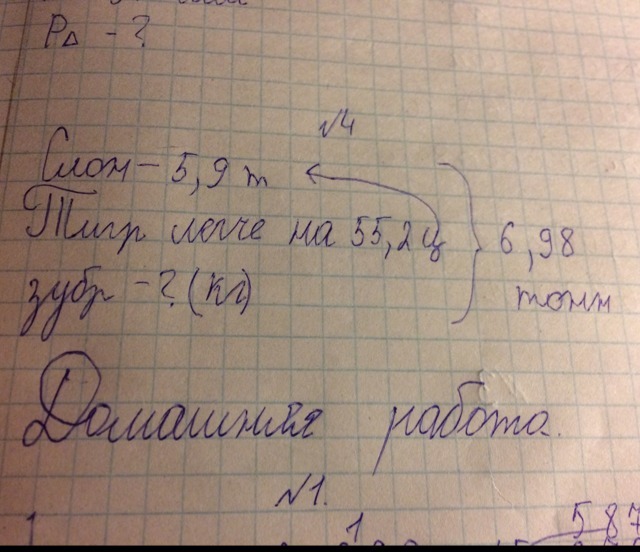 P∆ - ?
№4
Слон - 5,9 т
Тигр легче на 55,2 ц
6,98
зубр - ? (кг)
тонн
Домашняя работа.
№1.
1 1 587